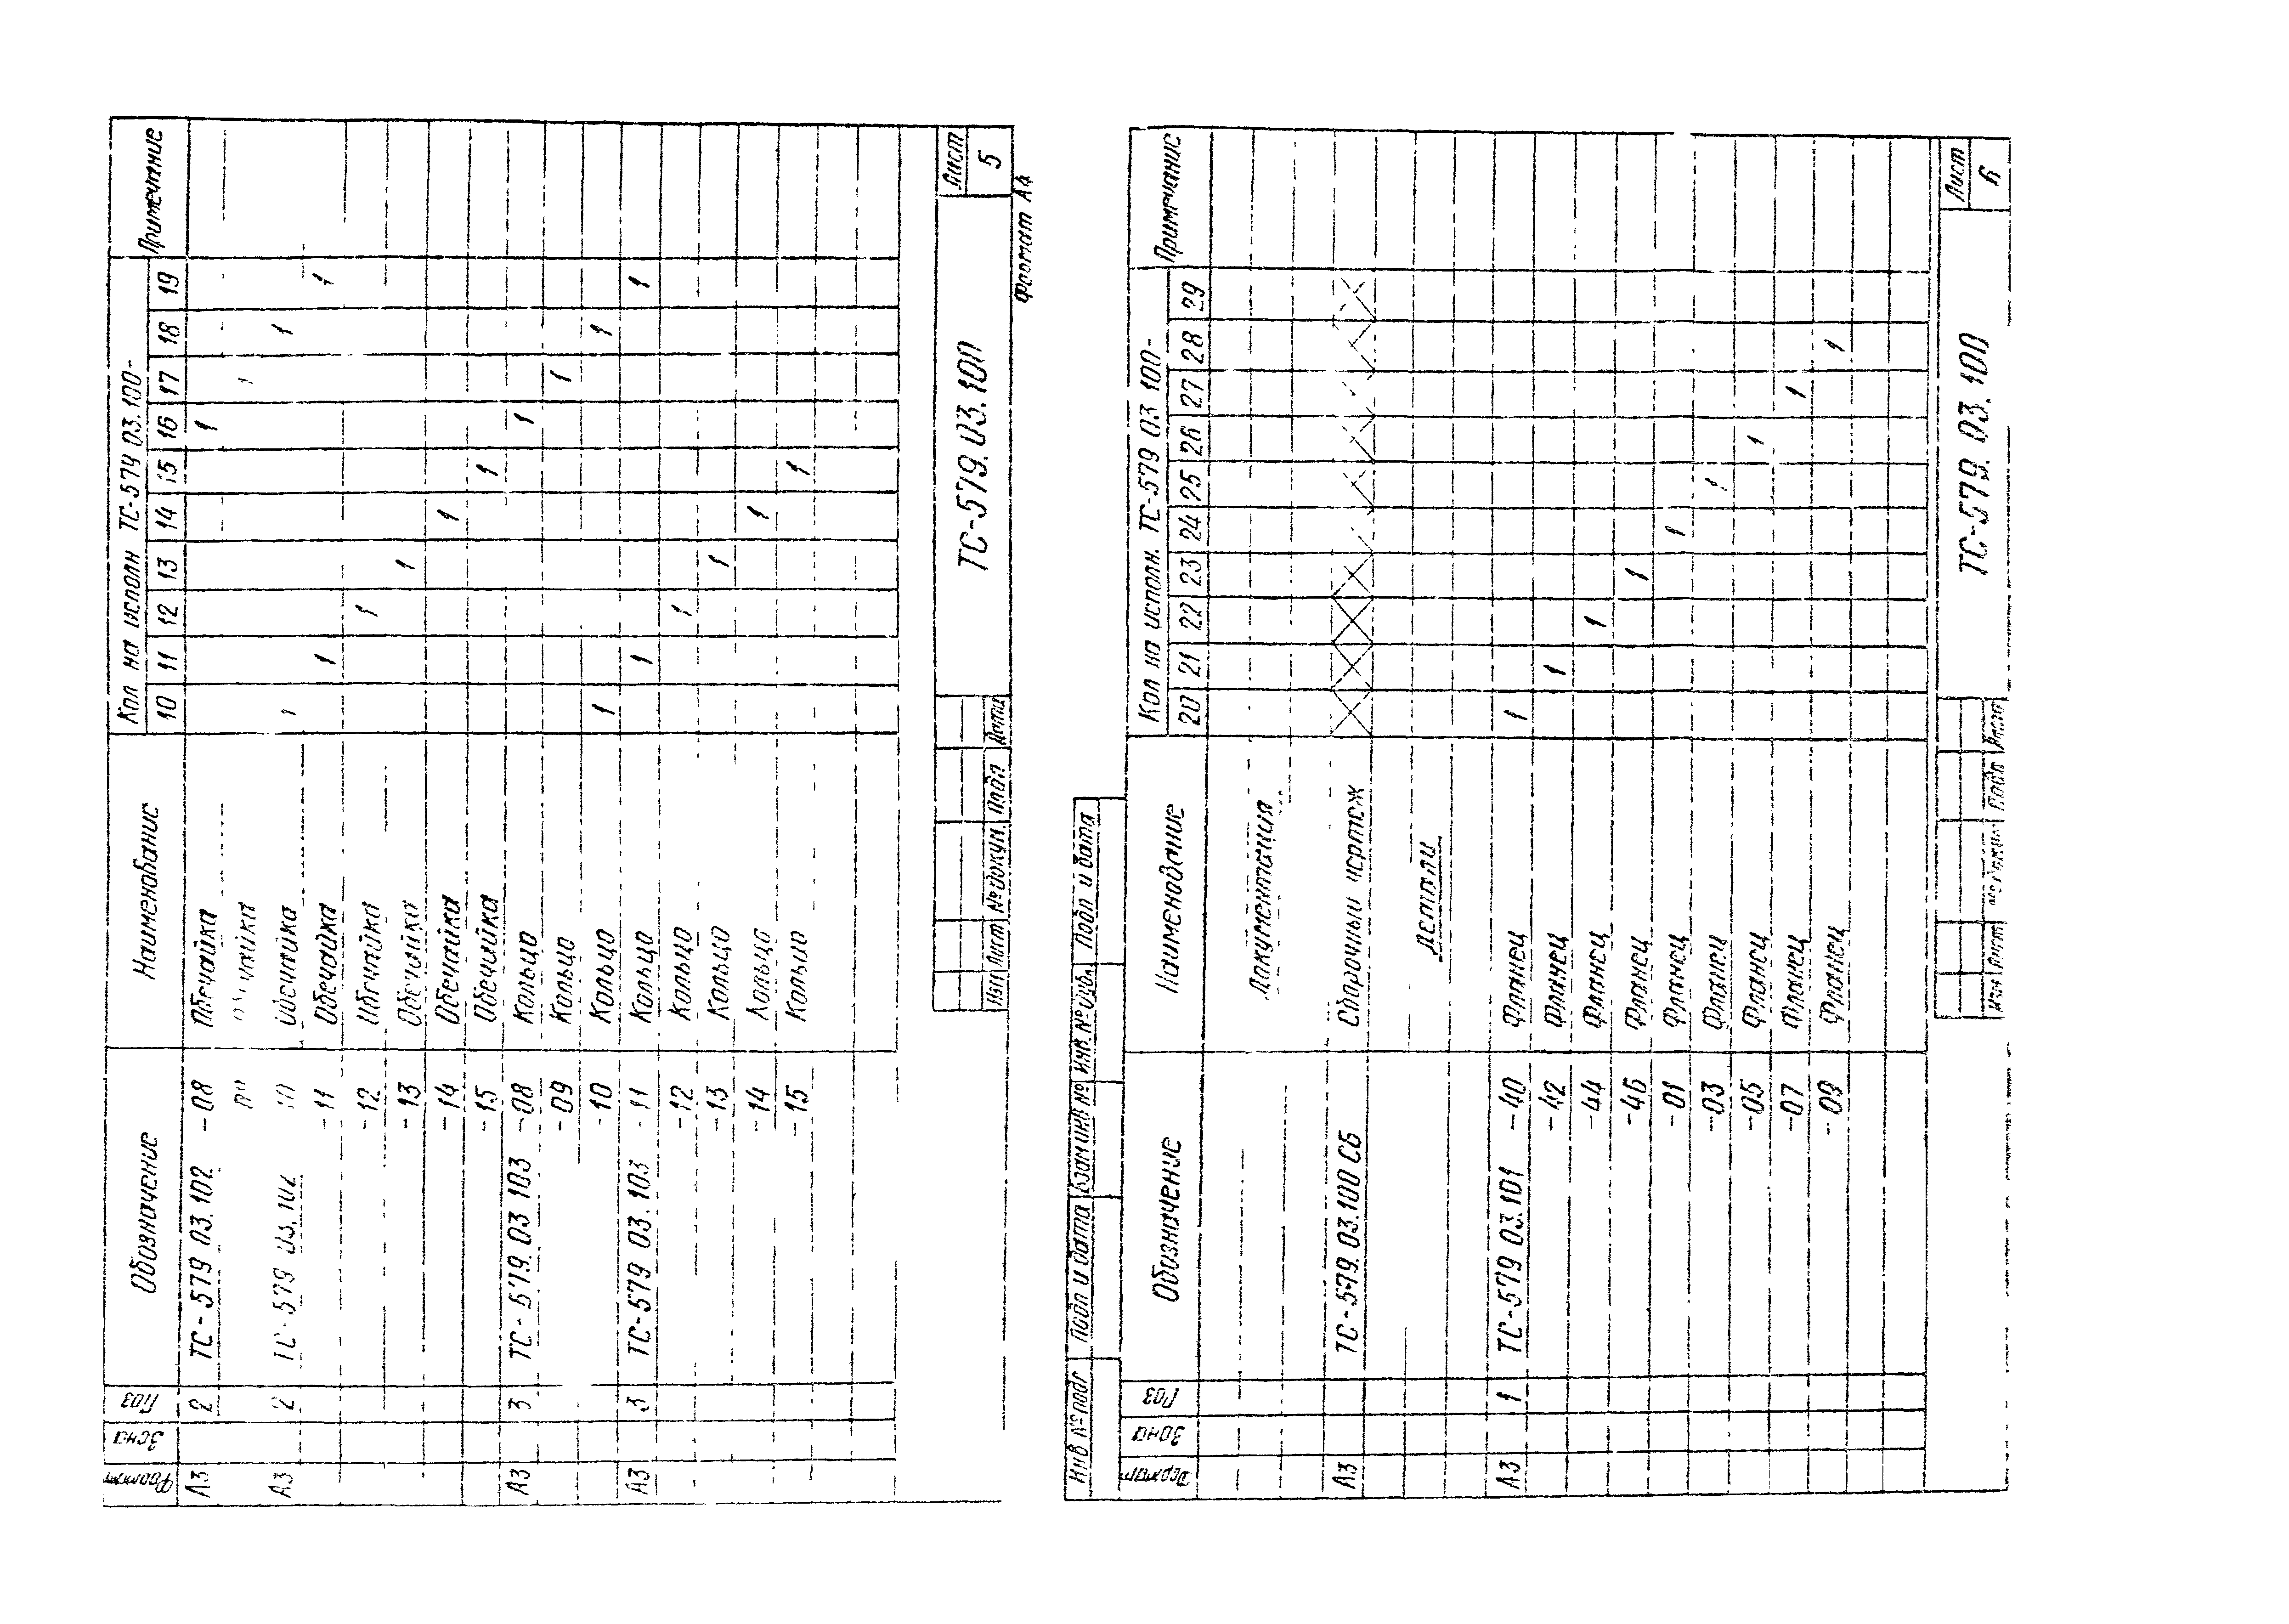 Формат Зона Поз Обозначение Наименование Кол на исполн ТС-579 03.100- Примечание
10 11 12 13 14 15 16 17 18 19
А3 2 ТС-579 03.102 -08 Обечайка 1
1
А3 2 ТС-579 03.102 Обечайка 1 1
-11 Обечайка 1 1
-12 Обечайка 1
-13 Обечайка 1
-14 Обечайка 1
-15 Обечайка 1
А3 3 ТС-579.03 103 -08 Кольцо 1
-09 Кольцо 1
-10 Кольцо 1 1
А3 3 ТС-579 03.103 -11 Кольцо 1 1
-12 Кольцо 1
-13 Кольцо 1
-14 Кольцо 1
-15 Кольцо 1
Изм Лист № докум. Подп Дата ТС-579.03.100 Лист 5
Формат А4
Инв № подл Подп и дата Взам инв № Инв. № дубл. Подп и дата
Формат Зона Поз Обозначение Наименование Кол на исполн. ТС-579 03 100- Примечание
20 21 22 23 24 25 26 27 28 29
Документация
А3 ТС-579.03.100 СБ Сборочный чертеж
Детали
А3 1 ТС-579 03.101 -40 Фланец 1
-42 Фланец 1
-44 Фланец 1
-46 Фланец 1
-01 Фланец 1
-03 Фланец 1
-05 Фланец 1
-07 Фланец 1
-09 Фланец 1
Изм Лист № докум Подп Дата ТС-579.03.100 Лист 6